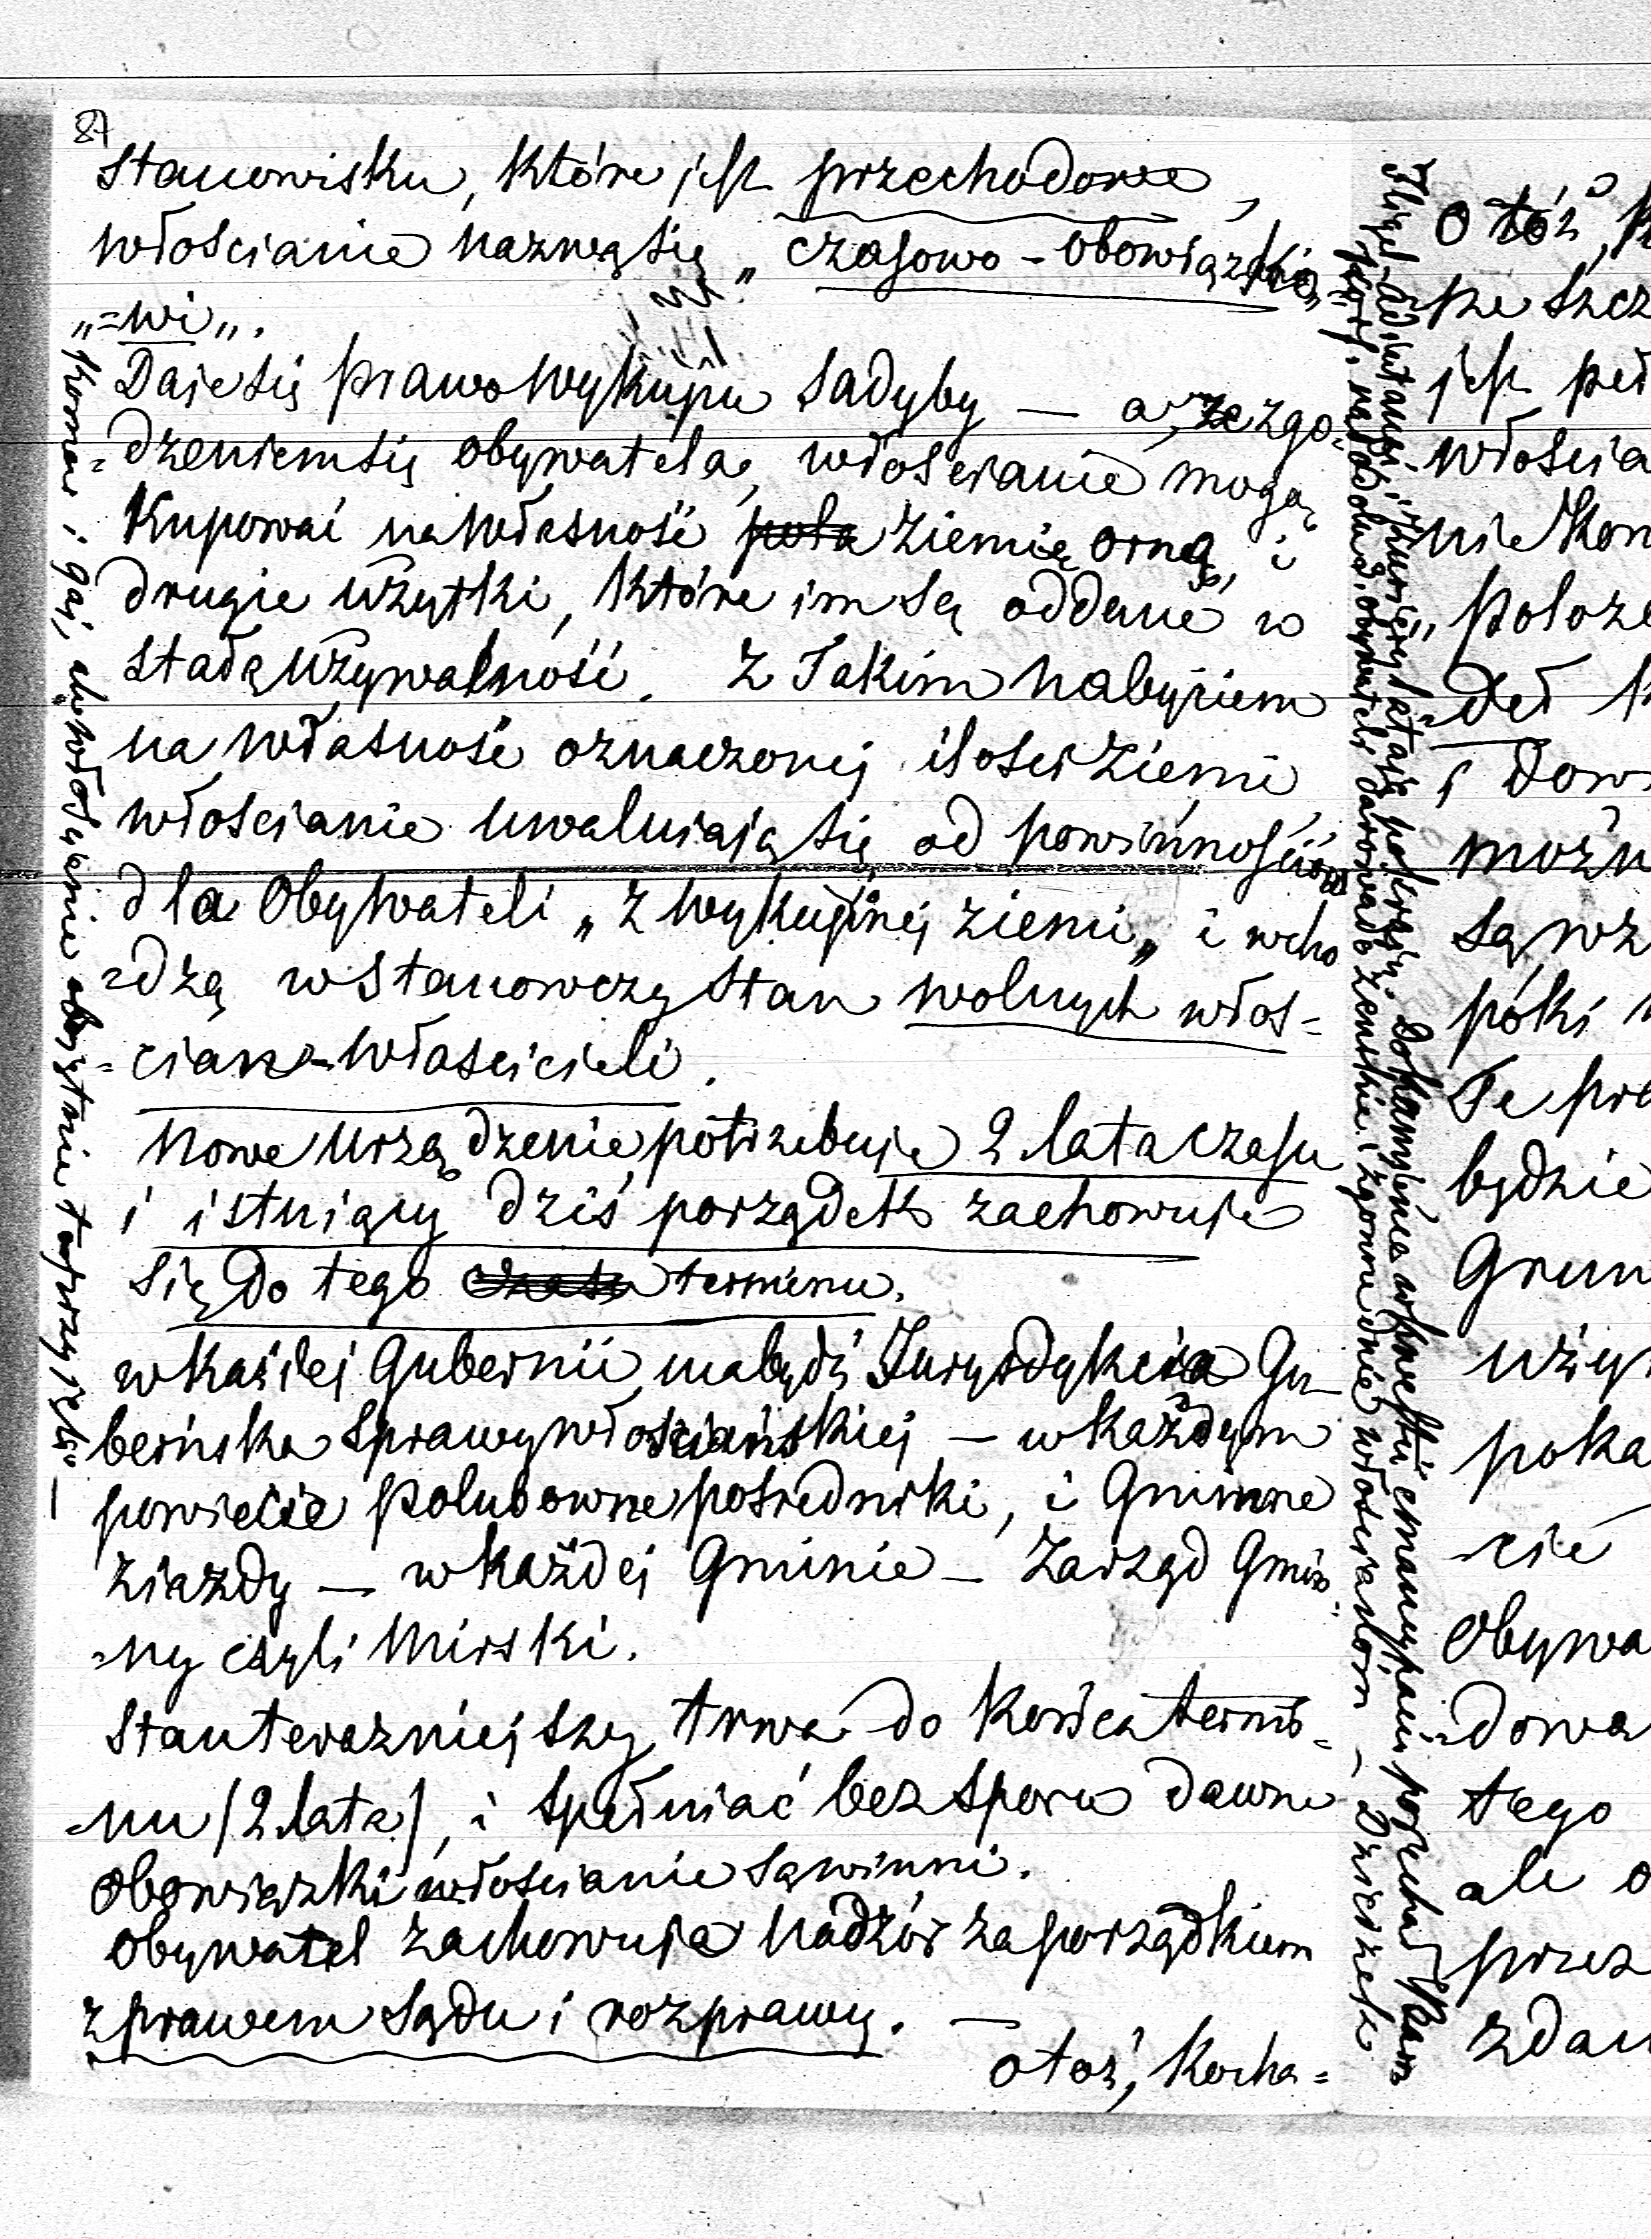 87
stanowisku, które jest przechodowe,
włościanie nazwą się „czasowo-obowiązko„
„=wi„.
Daje się prawo wykupu sadyby — a, ze zgo=
=dzeniem się obywatela, włościanie mogą
kupować na własność pola ziemię orną, i
drugie użytki, które im są oddane w
stałą używalność. Z takim nabyciem
na własność oznaczonej ilości ziemi,
włościanie uwalniają się od powinnościow
dla obywateli „z wykupnej ziemi„ i wcho
=dzą w stanowczy stan wolnych włoś=
=cian-właścicieli.
Nowe urządzenie potrzebuje 2 lata czasu
i istniący dziś porządek zachowuje
się do tego czasu terminu.
w każdej Gubernii ma być Jurysdykcia Gu-
berńska sprawy włościańskiej — w każdym
powiecie polubowne pośredniki, i Gminne
zjazdy — w każdej Gminie — Zarząd Gmin=
=ny czyli Mirski.
Stan teraźniejszy trwa do końca termi=
=nu (2 lata), i spełniać bez sporu dawne
obowiązki włościanie są winni.
Obywatel zachowuje nadzór za porządkiem
z prawem sądu i rozprawy. —
otoż, Kocha=
i gaj, włościanie
Fligel-adiutanci i kurjery latają
obywateli darowało ziemskie i zgonne dnie włościanom —
Otóż,
jest
włościa
nie
„położe
i
możn
są wz
póki
Te pre
będzie
Grun
użyt
poka
-cie
Obywa
-dowa
tego
ale o
przez
zdan